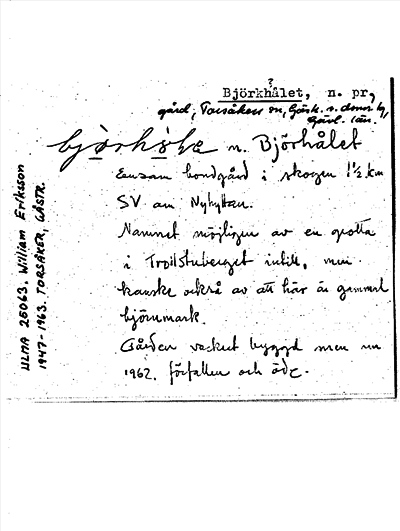 ?
Björkhålet, n. pr,
gård, Torsåkers sn, Gästr.
Gävl. län.
n. Björhålet
Ensam bondgård i skogen 1½ km
SV om Nyhyttan.
Namnet möjligen av en grotta
i Trollstuberget intill, men
kanske också av att här är gammal
björnmark.
Gården vackert byggd men nu
1962. förfallen och öde.
ULMA 25063. William Eriksson
1947-1963. TORSÅKER, GÄSTR.